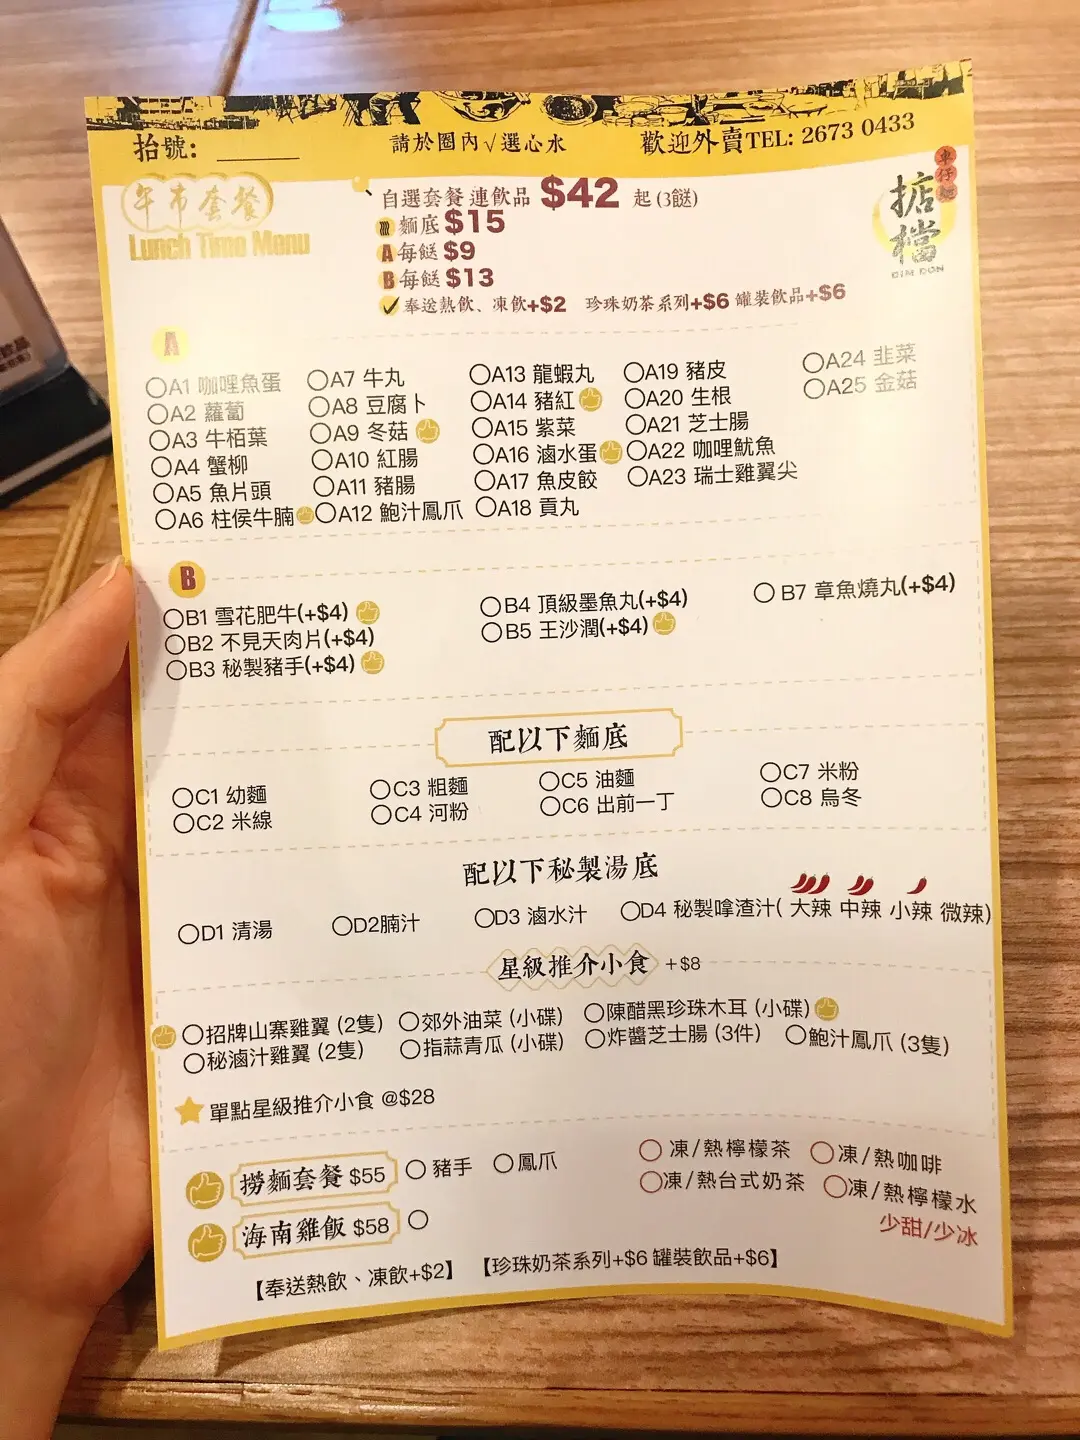 抬號: ______
請於圈內√選心水
歡迎外賣TEL: 2673 0433
午市套餐
Lunch Time Menu
自選套餐 連飲品 $42 起 (3餸)
麵底 $15
A 每餸 $9
B 每餸 $13
奉送熱飲、凍飲+$2 珍珠奶茶系列+$6 罐裝飲品+$6
車仔麵
掂檔
DIM DON
A
A1 咖哩魚蛋
A2 蘿蔔
A3 牛栢葉
A4 蟹柳
A5 魚片頭
A6 柱侯牛腩
A7 牛丸
A8 豆腐卜
A9 冬菇
A10 紅腸
A11 豬腸
A12 鮑汁鳳爪
A13 龍蝦丸
A14 豬紅
A15 紫菜
A16 滷水蛋
A17 魚皮餃
A18 貢丸
A19 豬皮
A20 生根
A21 芝士腸
A22 咖哩魷魚
A23 瑞士雞翼尖
A24 韭菜
A25 金菇
B
B1 雪花肥牛(+$4)
B2 不見天肉片(+$4)
B3 秘製豬手(+$4)
B4 頂級墨魚丸(+$4)
B5 王沙潤(+$4)
B7 章魚燒丸(+$4)
配以下麵底
C1 幼麵
C2 米線
C3 粗麵
C4 河粉
C5 油麵
C6 出前一丁
C7 米粉
C8 烏冬
配以下秘製湯底
D1 清湯
D2腩汁
D3 滷水汁
D4 秘製嗱渣汁( 大辣 中辣 小辣 微辣)
星級推介小食 +$8
招牌山寨雞翼 (2隻)
郊外油菜 (小碟)
陳醋黑珍珠木耳 (小碟)
秘滷汁雞翼 (2隻)
指蒜青瓜 (小碟)
炸醬芝士腸 (3件)
鮑汁鳳爪 (3隻)
單點星級推介小食 @$28
撈麵套餐 $55
豬手
鳳爪
海南雞飯 $58
凍/熱檸檬茶
凍/熱咖啡
凍/熱台式奶茶
凍/熱檸檬水
少甜/少冰
【奉送熱飲、凍飲+$2】 【珍珠奶茶系列+$6 罐裝飲品+$6】